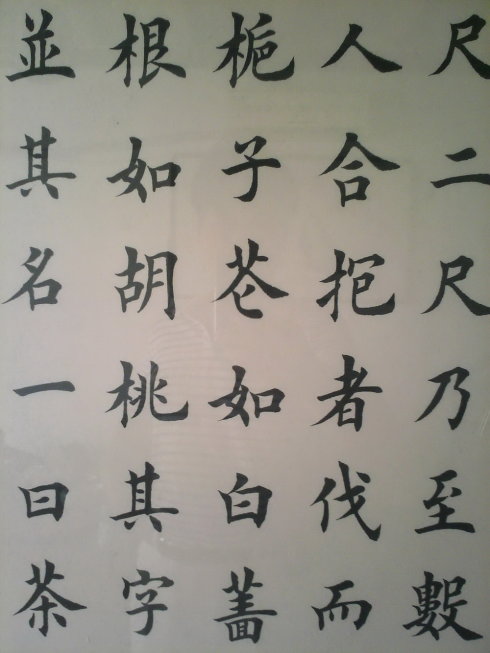 尺二尺乃至數
人合抱者伐而
栀子花如白薔
根如胡桃其字
並其名一曰茶